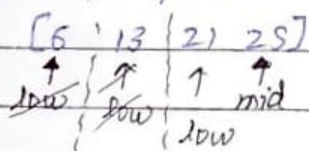 [6 13 21 25]
low low mid
low